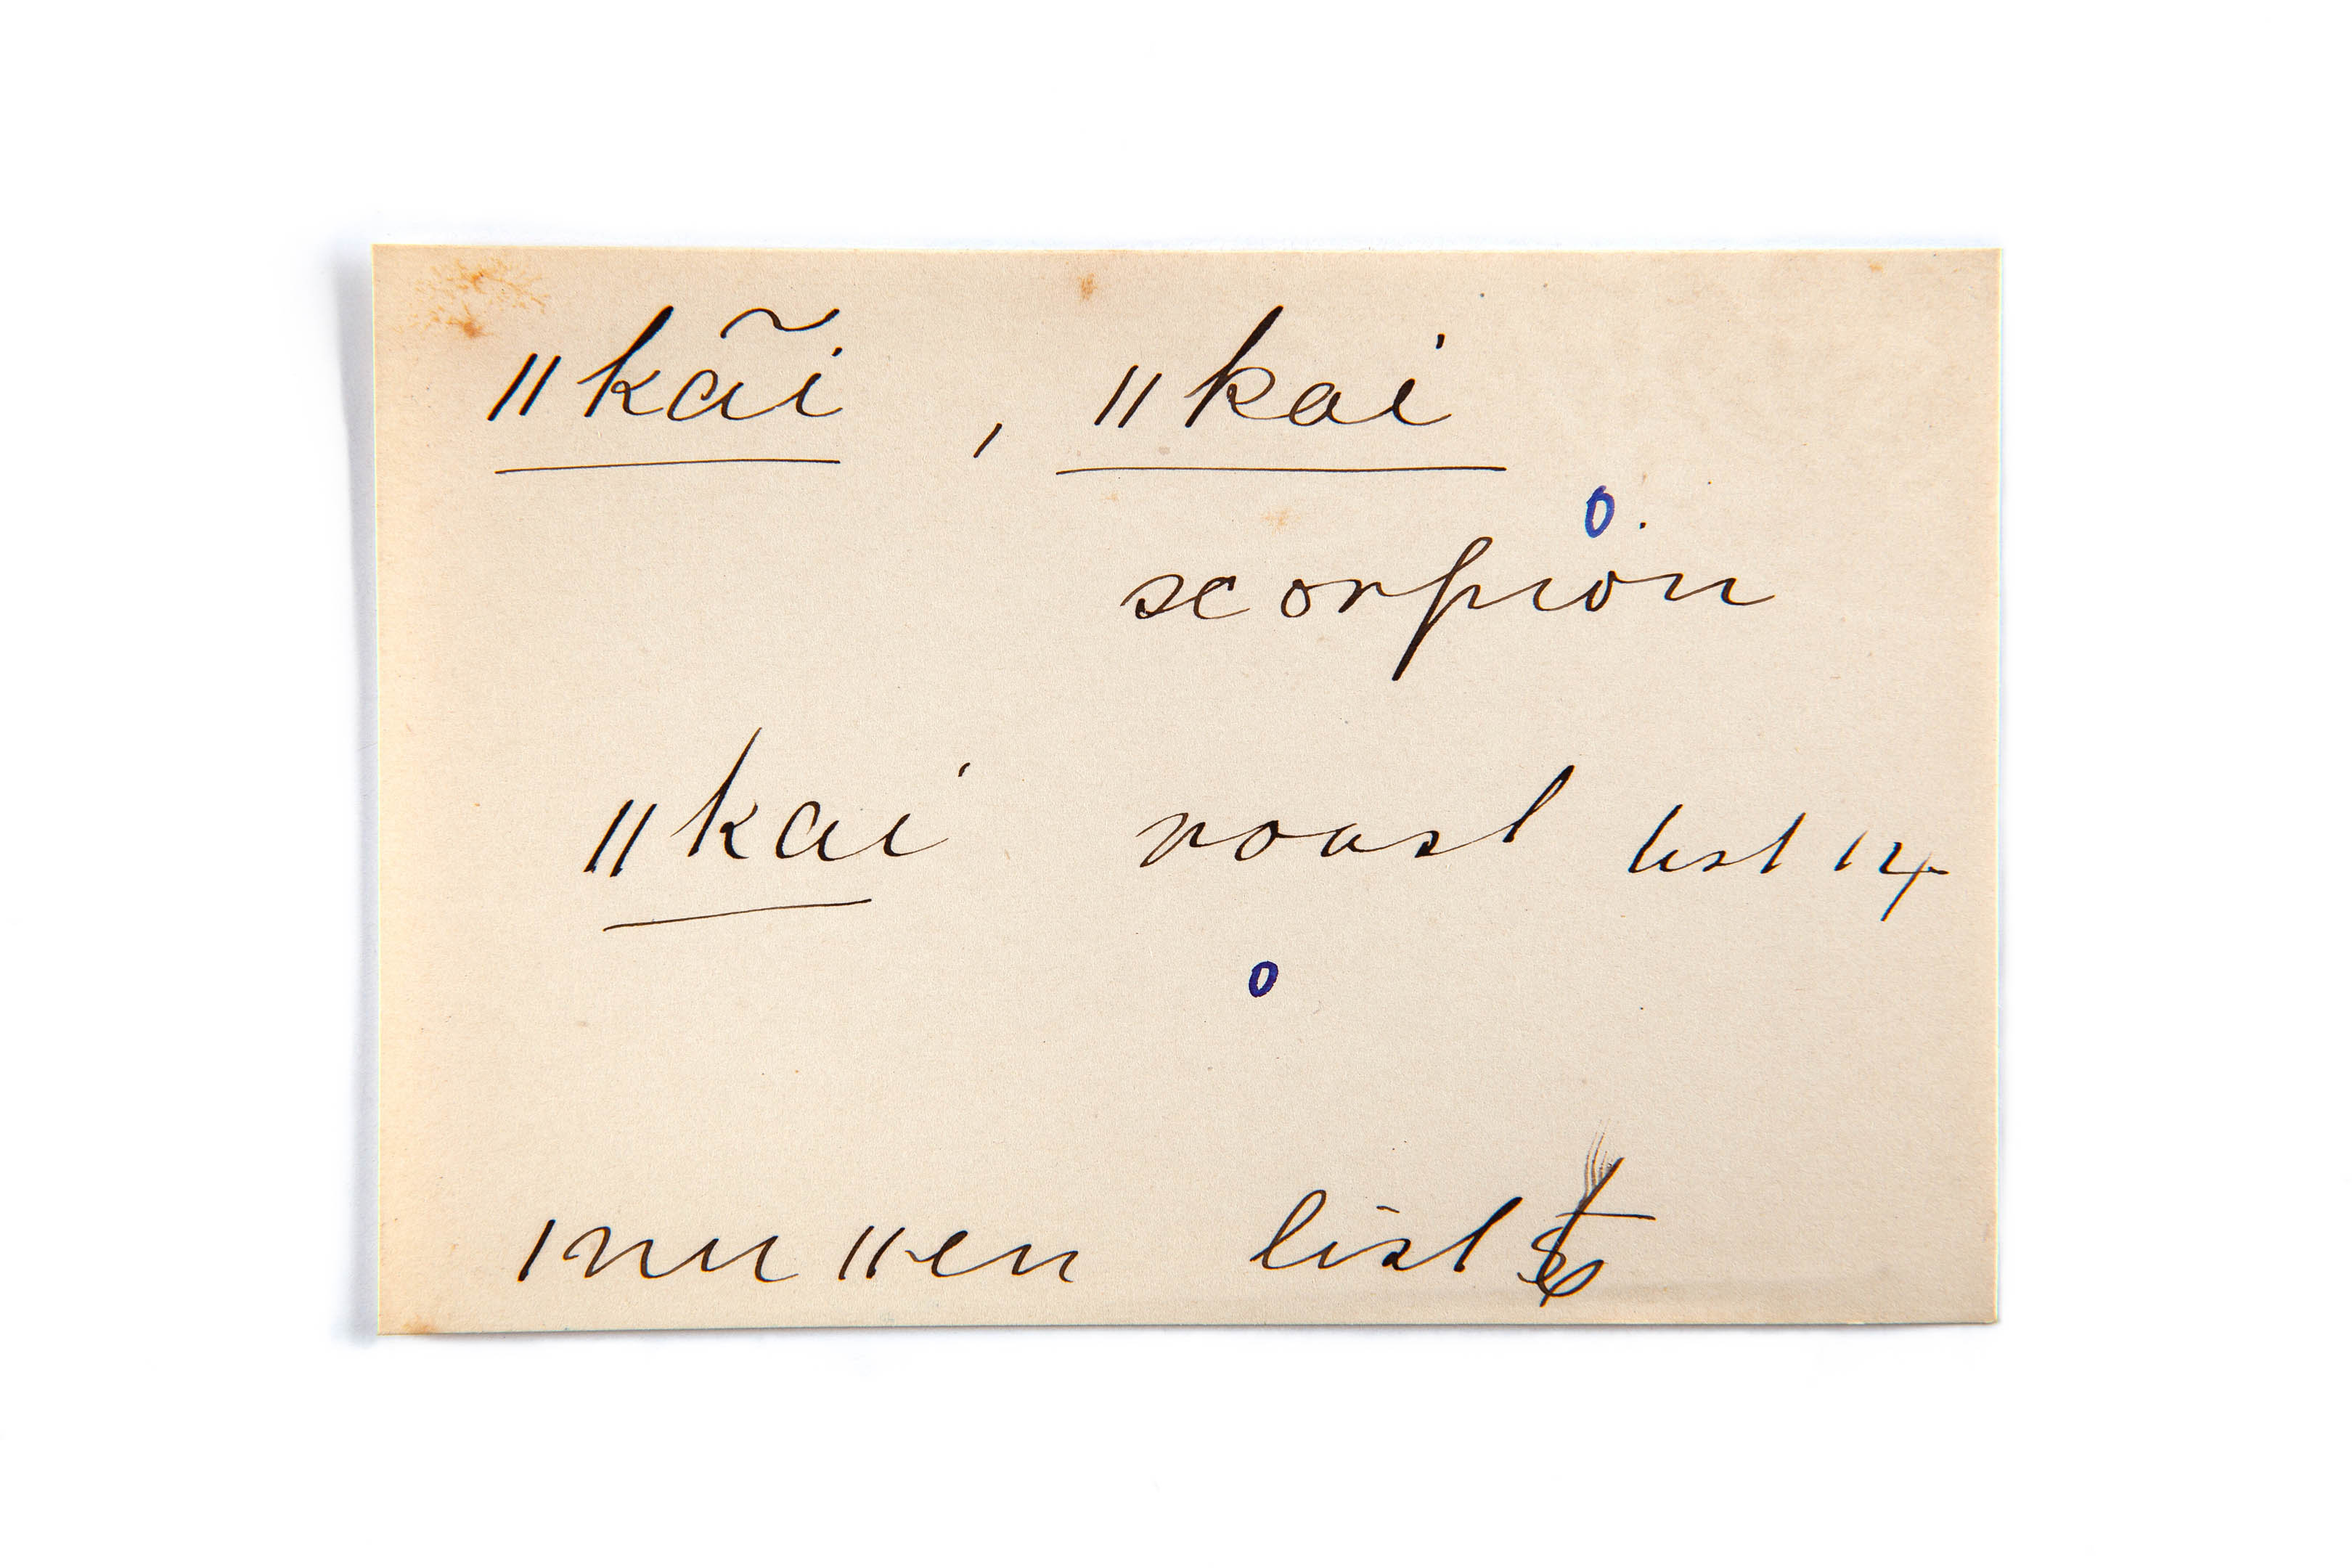 ǁkãi, ǁkai
scorpion
ǁkai roast list 14
ǀnuǁen list